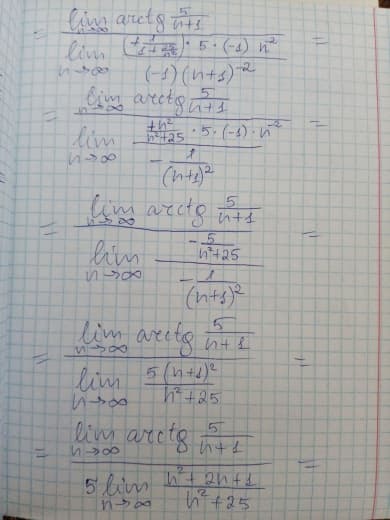 = lim n→∞ arctg 5/(n+1)
lim n→∞ ((+1/(1+25/n²)) · 5 · (-1) n⁻²)/((-1)(n+1)⁻²) =
= lim n→∞ arctg 5/(n+1)
lim n→∞ (+n²/(n²+25) · 5 · (-1) · n⁻²)/(-1/(n+1)²) =
= lim n→∞ arctg 5/(n+1)
lim n→∞ (-5/(n²+25))/(-1/(n+1)²) =
= lim n→∞ arctg 5/(n+1)
lim n→∞ 5(n+1)²/(n²+25) =
= lim n→∞ arctg 5/(n+1)
5 lim n→∞ (n²+2n+1)/(n²+25) =